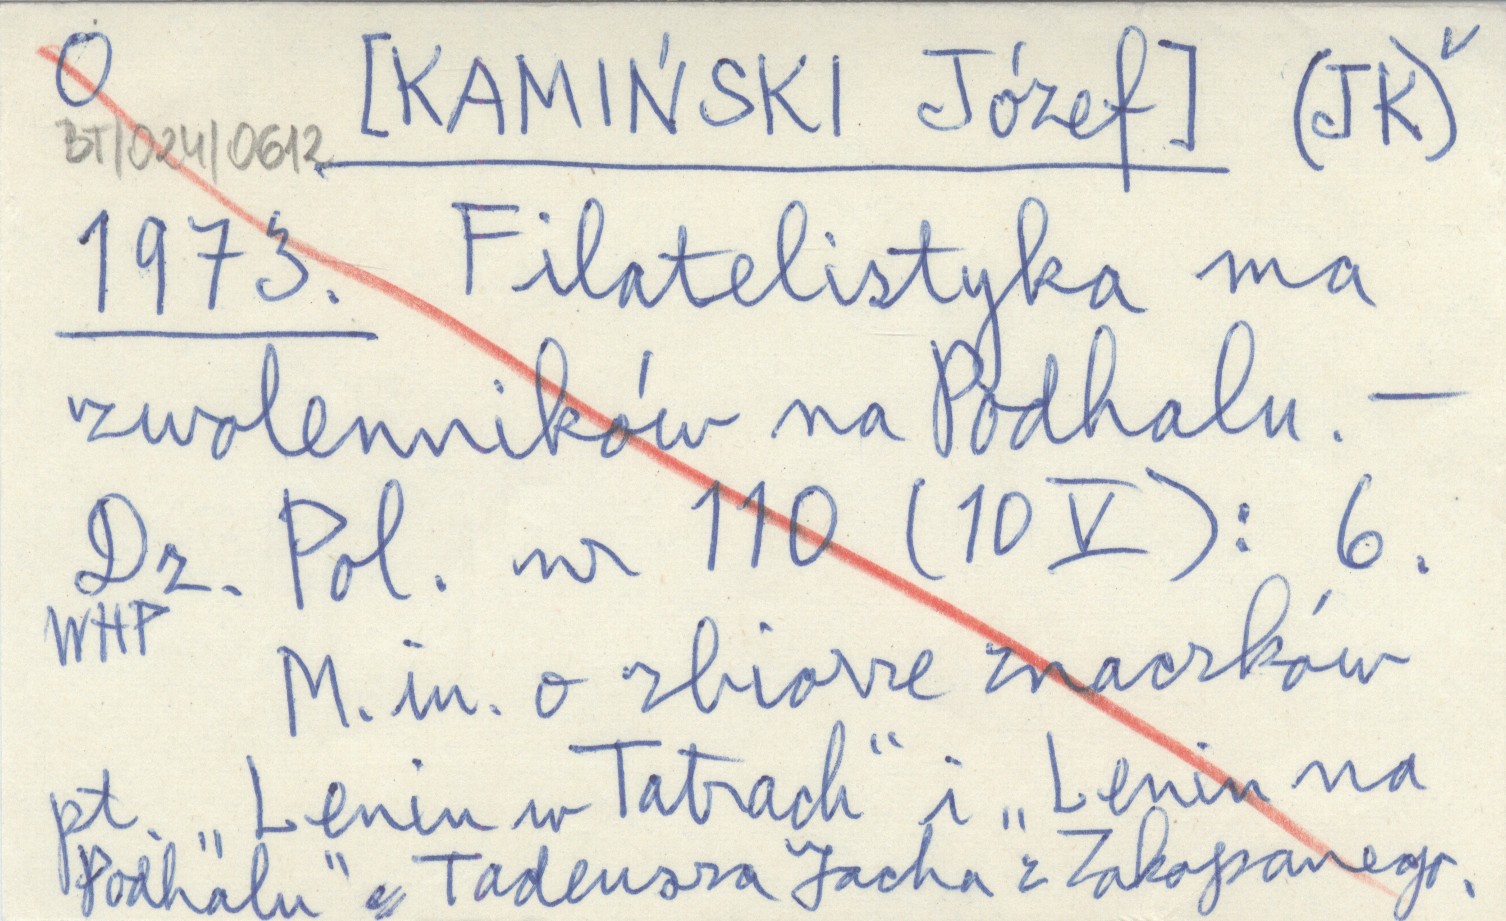 O [KAMIŃSKI Józef] (JK)
BT/024/0612
1973. Filatelistyka ma
zwolenników na Podhalu. —
Dz. Pol. nr 110 (10 V): 6.
WHP
M. in. o zbiorze znaczków
pt. „Lenin w Tatrach" i „Lenin na
Podhalu" Tadeusza Jacha z Zakopanego.